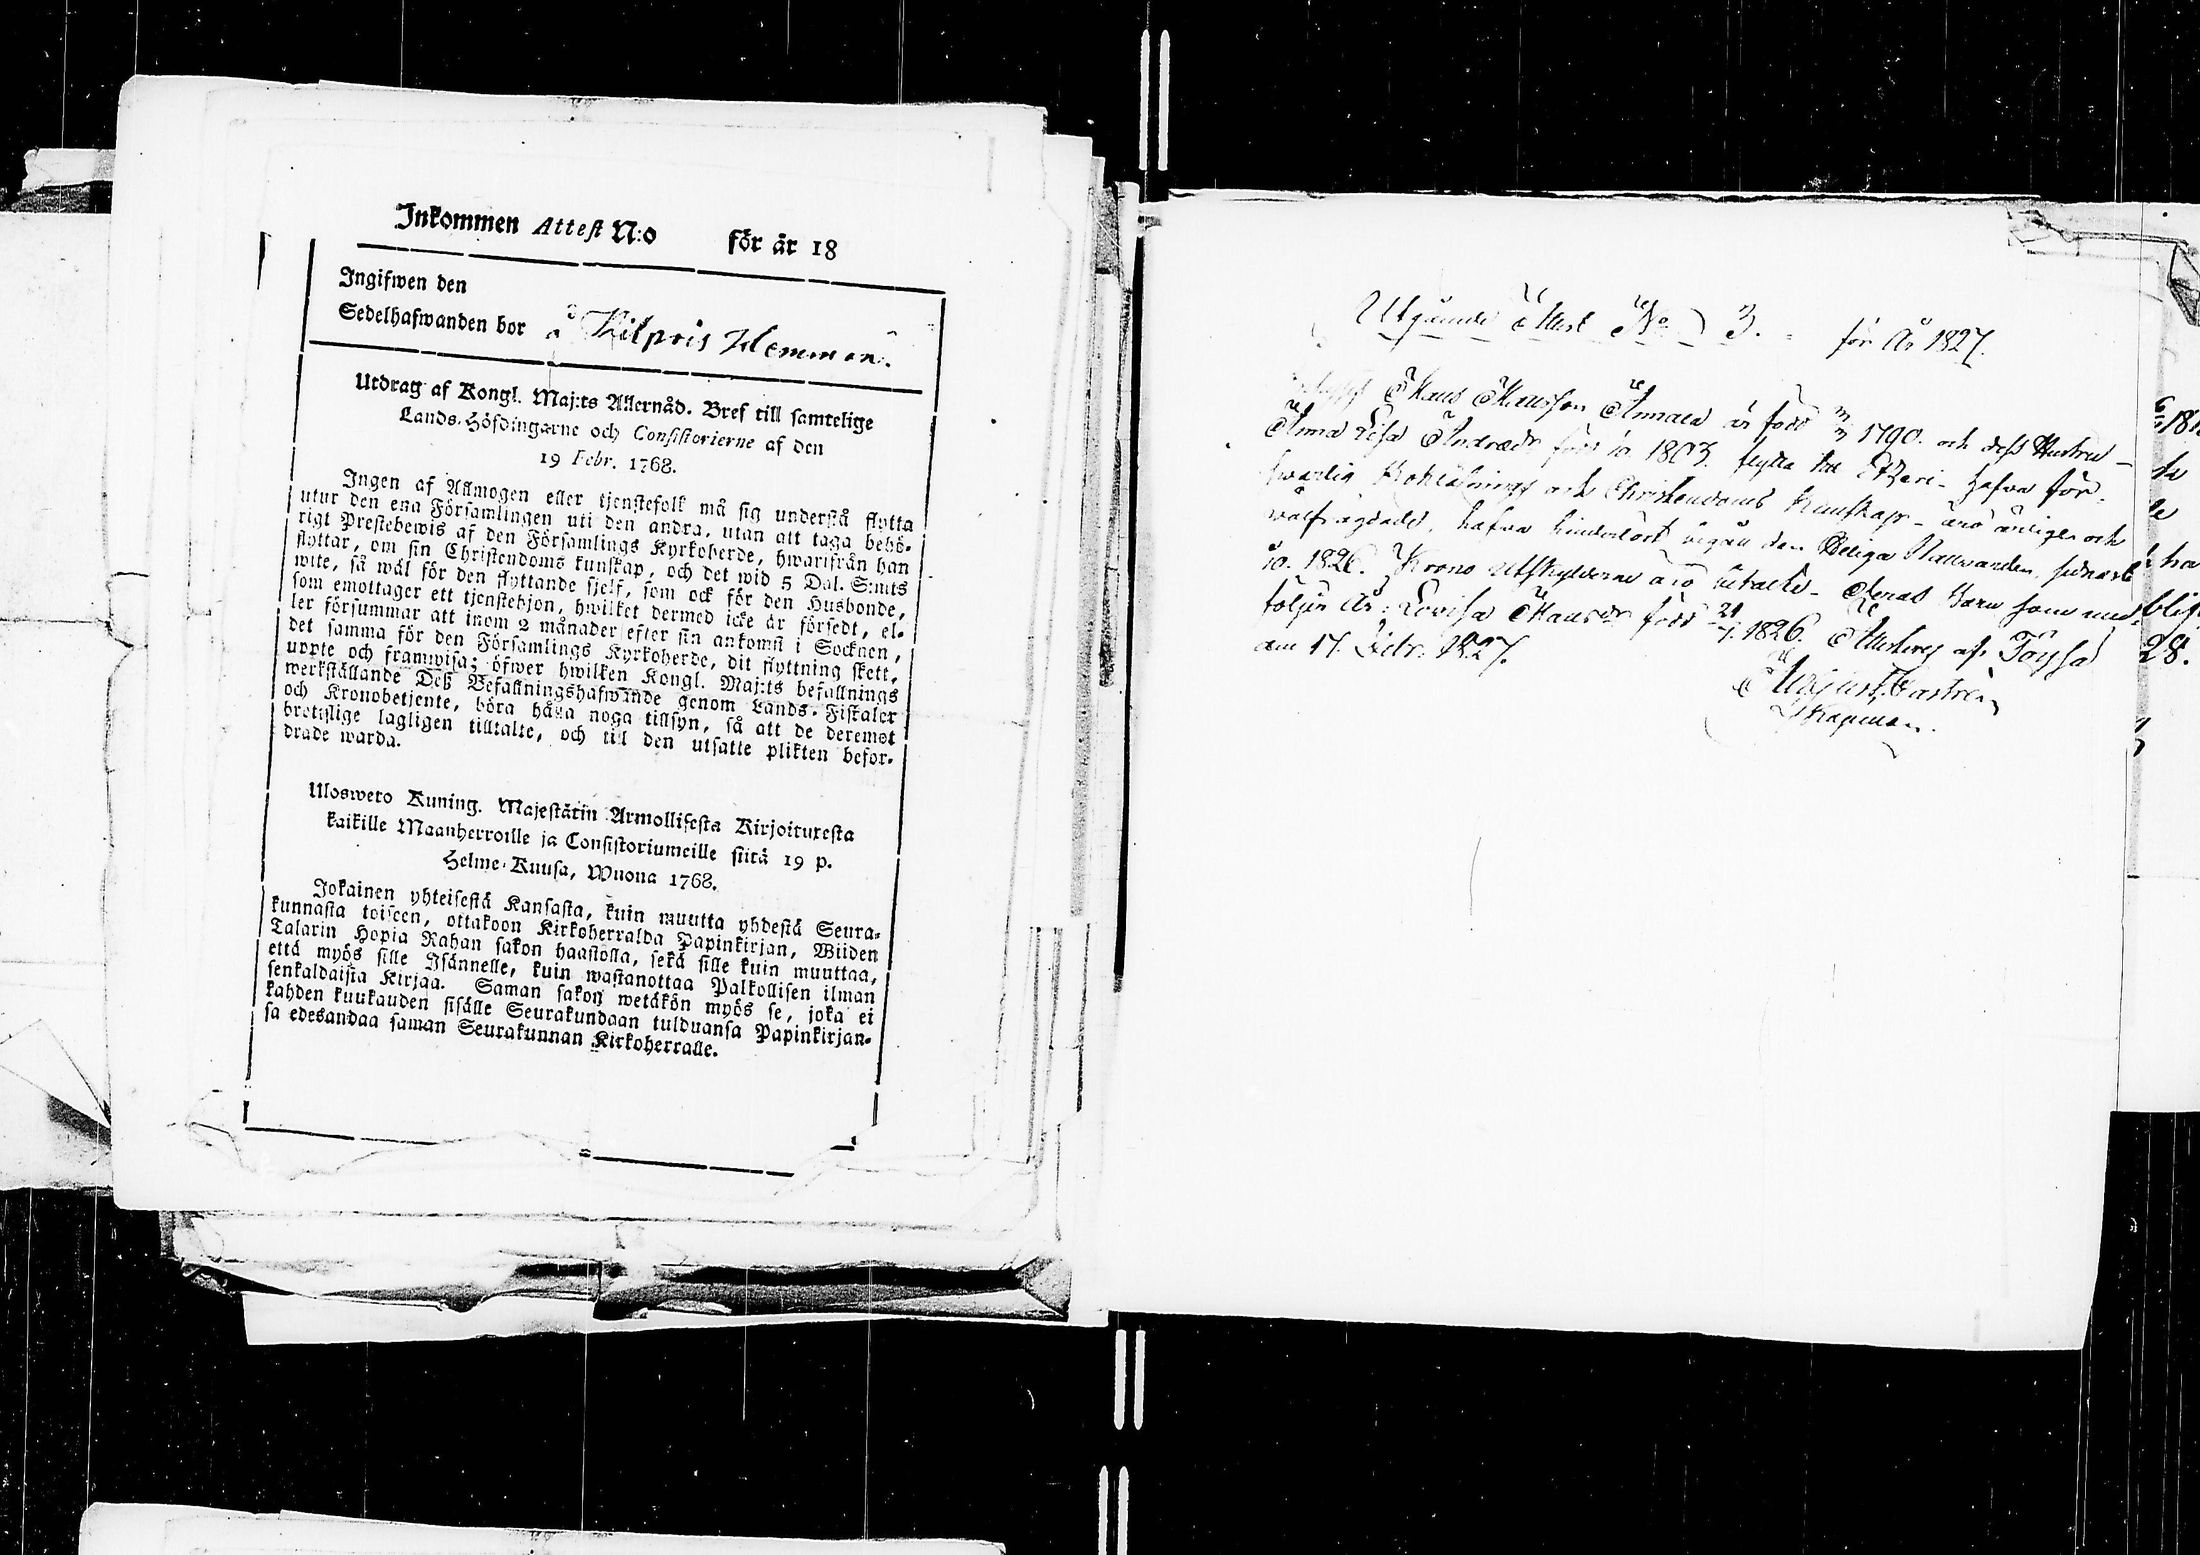 Inkommen Attest N:o för år 18
Ingifwen den
Sedelhafwanden bor å Kilpris Hemman.
Utdrag af Kongl. Maj:ts Allernåd. Bref till samtelige
Lands-Höfdingarne och Consistorierne af den
19 Febr. 1768.
Ingen af Allmogen eller tjenstefolk må sig understå flytta
utur den ena Församlingen uti den andra, utan att taga behö-
rigt Prestebewis af den Församlings Kyrkoherde, hwarifrån han
flyttar, om sin Christendoms kunskap, och det wid 5 Dal. S:mts
wite, så wäl för den flyttande sjelf, som ock för den Husbonde,
som emottager ett tjenstehjon, hwilket dermed icke är försedt, el-
ler försummar att inom 2 månader efter sin ankomst i Socknen,
det samma för den Församlings Kyrkoherde, dit flyttning skett,
uppte och framwisa; öfwer hwilken Kongl. Maj:ts befallnings
werkställande Deß Befallningshafwande genom Lands-Fiskaler
och Kronobetjente, böra hafwa noga tillsyn, så att de deremot
brottslige lagligen tilltalte, och till den utsatte plikten befor-
drade warda.
Uloswето Kuning. Majestätin Armollisesta Kirjoituxesta
kaikille Maanherroille ja Consistoriumeille siitä 19 p.
Helme-Kuusa, Wuona 1768.
Jokainen yhteisestä Kansasta, kuin muutta yhdestä Seura-
kunnasta toiseen, ottakoon Kirkoherralda Papinkirjan, Wiiden
Talarin Hopia Rahan sakon haastolla, sekä sille kuin muuttaa,
että myös sille Isännelle, kuin wastanottaa Palkollisen ilman
senkaldaista Kirjaa. Saman sakon wetäkön myös se, joka ei
kahden kuukauden sisälle Seurakundaan tulduansa Papinkirjan-
sa edesandaa saman Seurakunnan Kirkoherralle.
Utgående Attest No 3. för År 1827.
Mans Mansson Annala är född 1790. och dess Hustru
Anna Lisa Andraedr född år 1803. flytta till Etzeri - hafva för-
svarlig Boklasnings och Christendoms kunskap - äro ärlige och
välfrägdade, hafva hinderlöst begått den Heliga Nattvarden, sednast
år 1826. Krono Utskylderne äro betalte - Deras Barn som med-
följer är: Lovisa Mansdr född 21/1 1826. Attesteras af Töysä
den 17. Febr. 1827.
August Castrén
Kapellan.